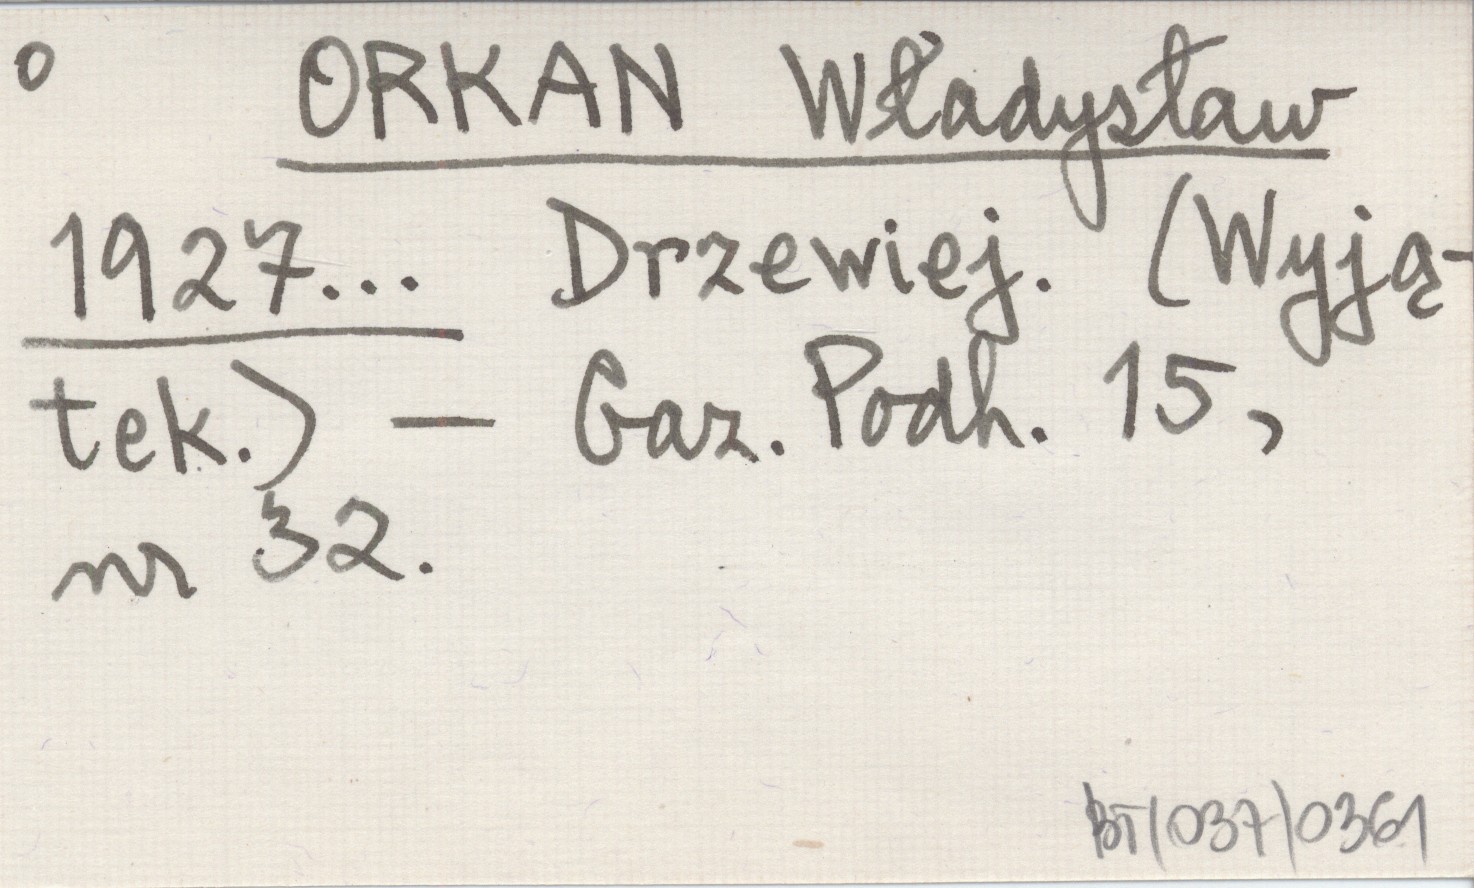 o ORKAN Władysław
1927... Drzewiej. (Wyją-
tek.) — Gaz. Podh. 15,
nr 32.
BT/037/0361